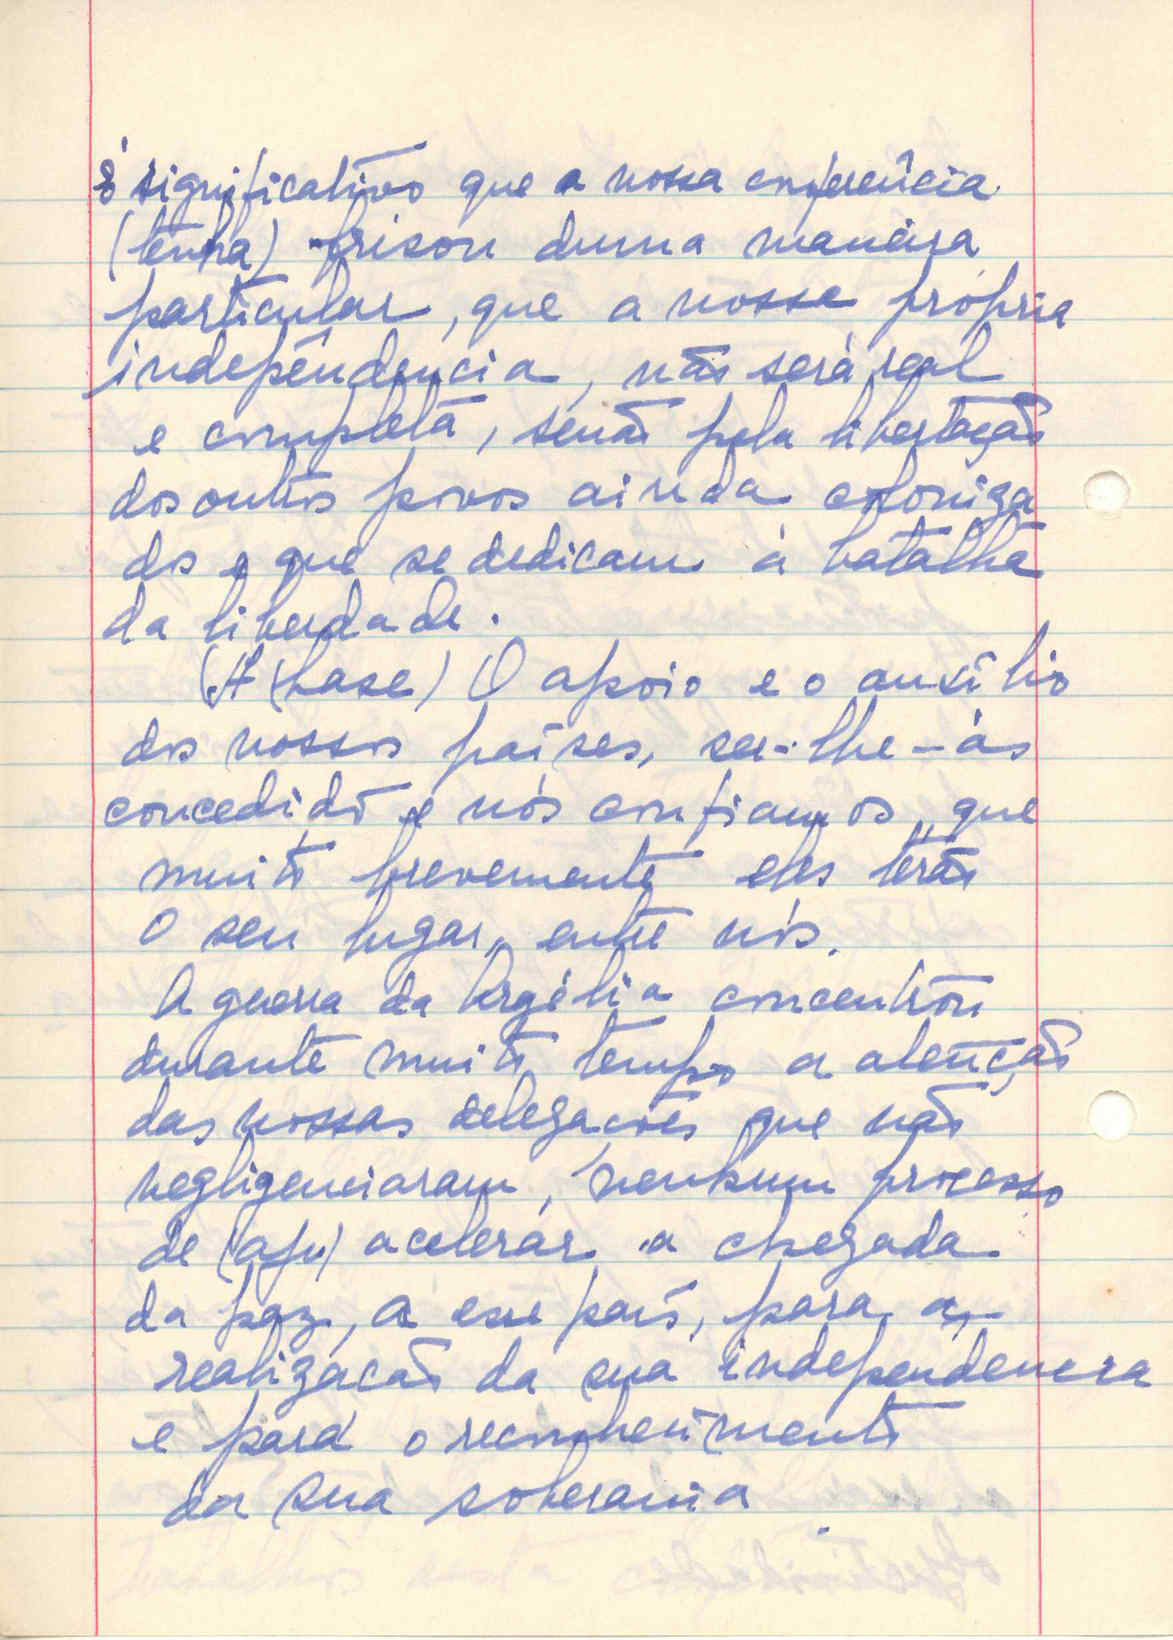 É significativo que a nossa conferência
(tenha) frisou duma maneira
particular, que a nossa própria
independência, não será real
e completa, senão pela libertação
dos outros povos ainda coloniza
dos e que se dedicam à batalha
da liberdade.
(A base) O apoio e o auxílio
dos nossos países, ser-lhe-ás
concedido e nós confiamos, que
muito brevemente eles terão
O seu lugar, entre nós.
A guerra da Argélia concentrou
durante muito tempo a atenção
das nossas delegações que não
negligenciaram, nenhum processo
de (ap.) acelerar a chegada
da paz, a esse país, para a
realização da sua independencia
e para o reconhecimento
da sua soberania.